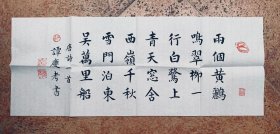 兩個黃鸝
鳴翠柳一
行白鷺上
青天窗含
西嶺千秋
雪門泊東
吳萬里船
唐詩一首
譚書